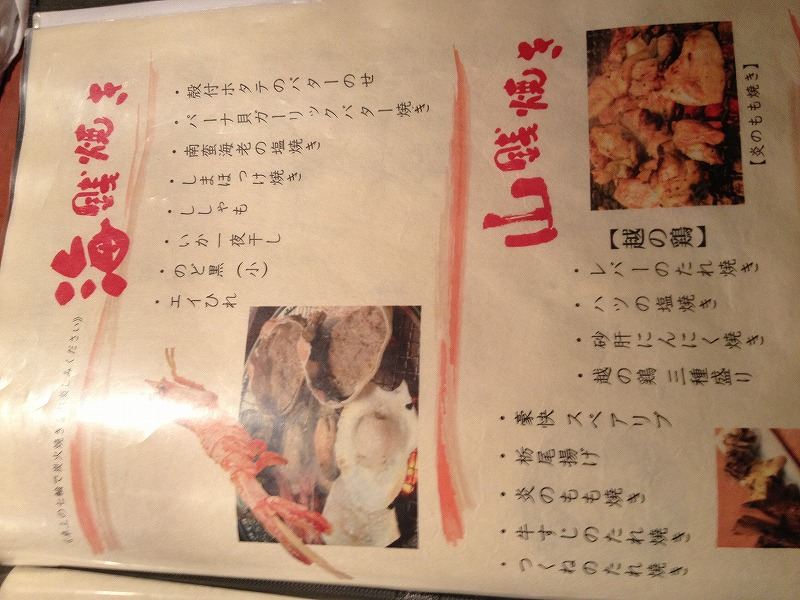 海賊焼き
《卓上の七輪で炭火焼き
楽しみください》
・殻付ホタテのバターのせ
・バーナ貝ガーリックバター焼き
・南蛮海老の塩焼き
・しまほっけ焼き
・ししゃも
・いか一夜干し
・のど黒(小)
・エイひれ
山賊焼き
【炎のもも焼き】
【越の鶏】
・レバーのたれ焼き
・ハツの塩焼き
・砂肝にんにく焼き
・越の鶏 三種盛り
・豪快スペアリブ
・栃尾揚げ
・炎のもも焼き
・牛すじのたれ焼き
・つくねのたれ焼き